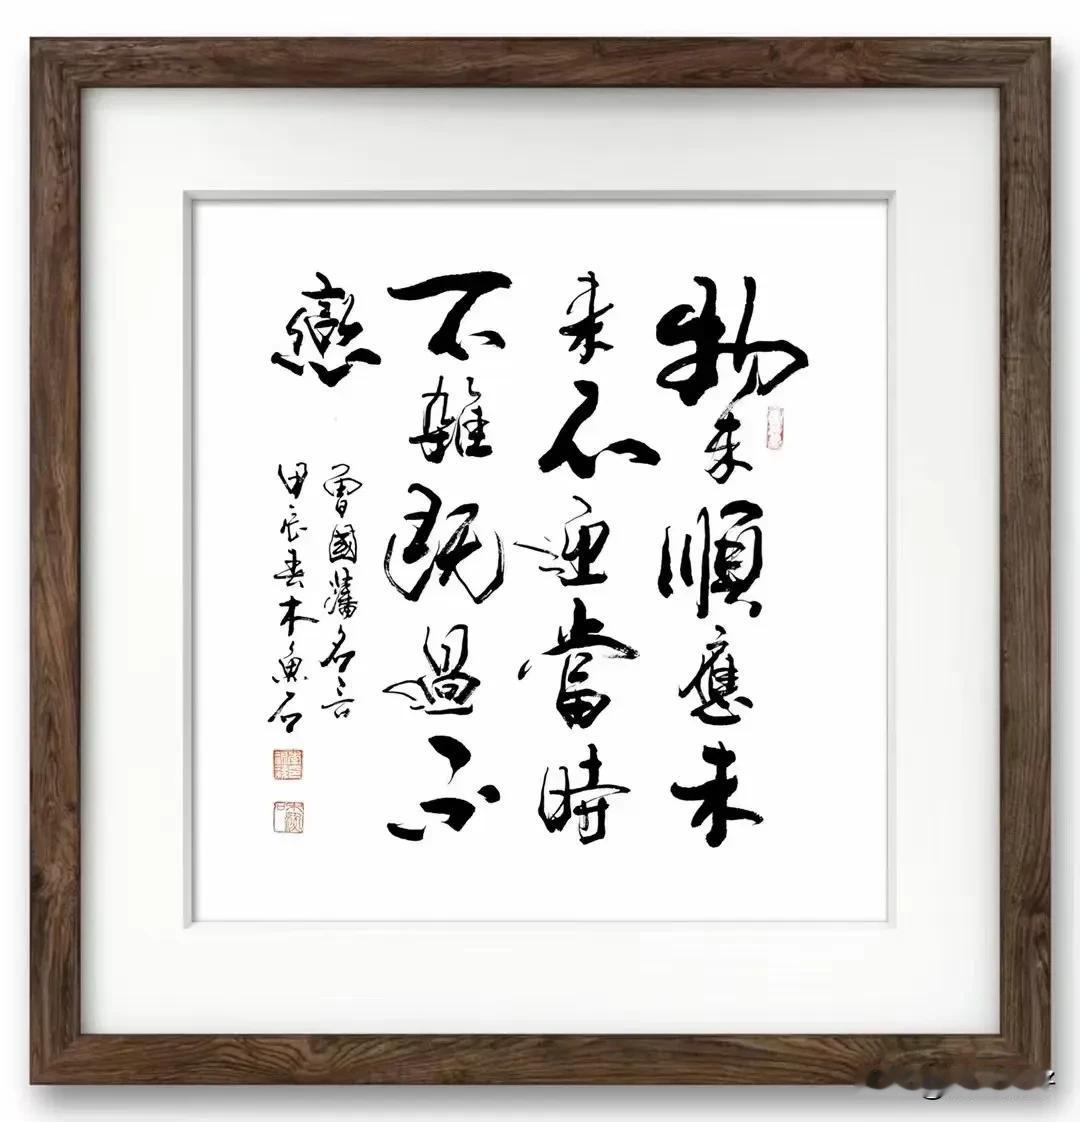 物来順應未
来不迎當時
不雜既過不
戀
曾國藩名言
甲辰春木魚石